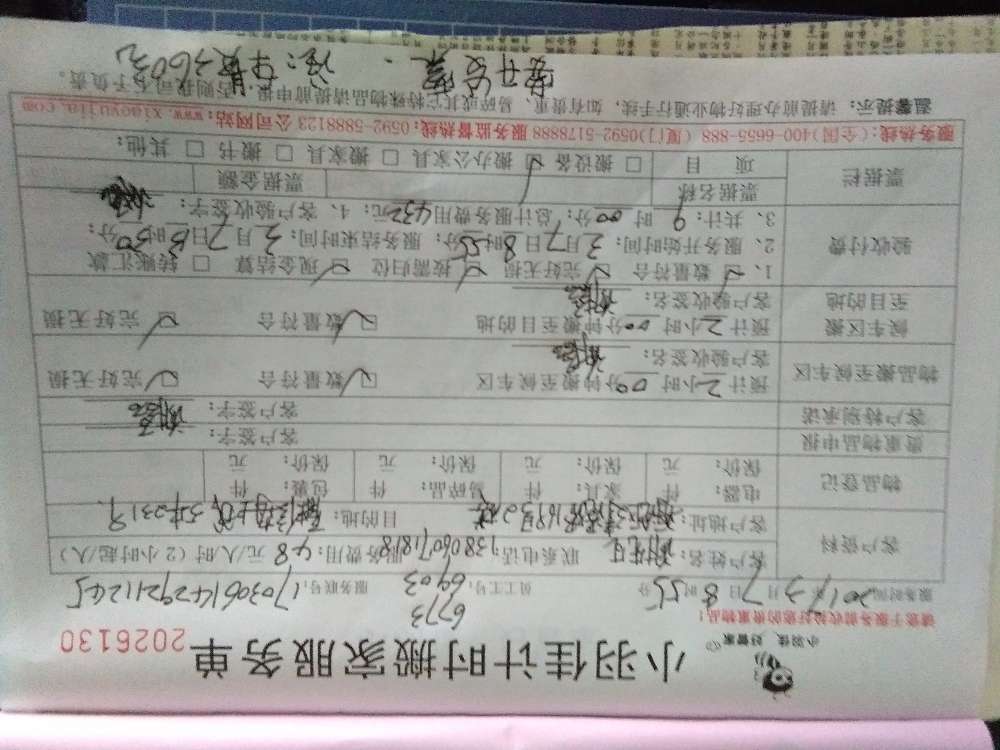 小羽佳计时搬家服务单
2026130
小羽佳，好管家
请您于服务前收拾好您的贵重物品：
服务时间 3月7日8时55分 员工工号：6773 6903 服务联号：1703061429211245
客户资料
客户姓名： 先生 联系电话：13806071818 服务费用：48元/人/时（2小时起/人）
客户地址： 目的地：
物品登记
电器： 件 家具： 件 易碎品： 件 包裹： 件
保价： 元 保价： 元 保价： 元 保价： 元
贵重物品申报 客户签字：
客户特别承诺 客户签字：
物品搬至候车区
预计2小时00分钟搬至候车区 ☑数量符合 ☑完好无损
客户验收签名：
候车区搬至目的地
预计2小时00分钟搬至目的地 ☑数量符合 ☑完好无损
客户验收签名：
验收付费
1、☑数量符合 ☑完好无损 ☑按需归位 ☑现金结算 □转账汇款
2、服务开始时间：3月7日8时55分；服务结束时间：3月7日13时30分；
3、共计：9时00分；总计服务费用432元；4、客户验收签字：
票据栏
票据名称 票据金额
项目 □搬设备 ☑搬办公家具 □搬家具 □搬书 □其他：
服务热线：（全国）400-6655-888（厦门）0592-5178888 服务监督热线：0592-5888123 公司网站：www.xiaoyujia.com
温馨提示：请提前办理好物业通行手续，如有贵重、易碎或其它特殊物品请提前申报，否则我司不予负责。
要开发票 注：早晚360元